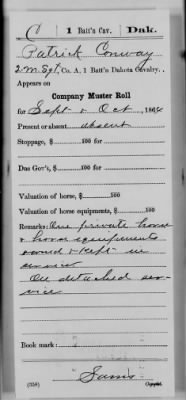 C 1 Batt's Cav. Dak.
Patrick Conway
2.M.Sgt, Co. A, 1 Batt'n Dakota Cavalry.
Appears on
Company Muster Roll
for Sept & Oct, 1864
Present or absent absent
Stoppage, $ 100 for
Due Gov't, $ 100 for
Valuation of horse, $ 100
Valuation of horse equipments, $ 100
Remarks: One private horse
& horse equipments
owned & kept in
service
On detached ser-
vice
Book mark:
(358) Copyist.